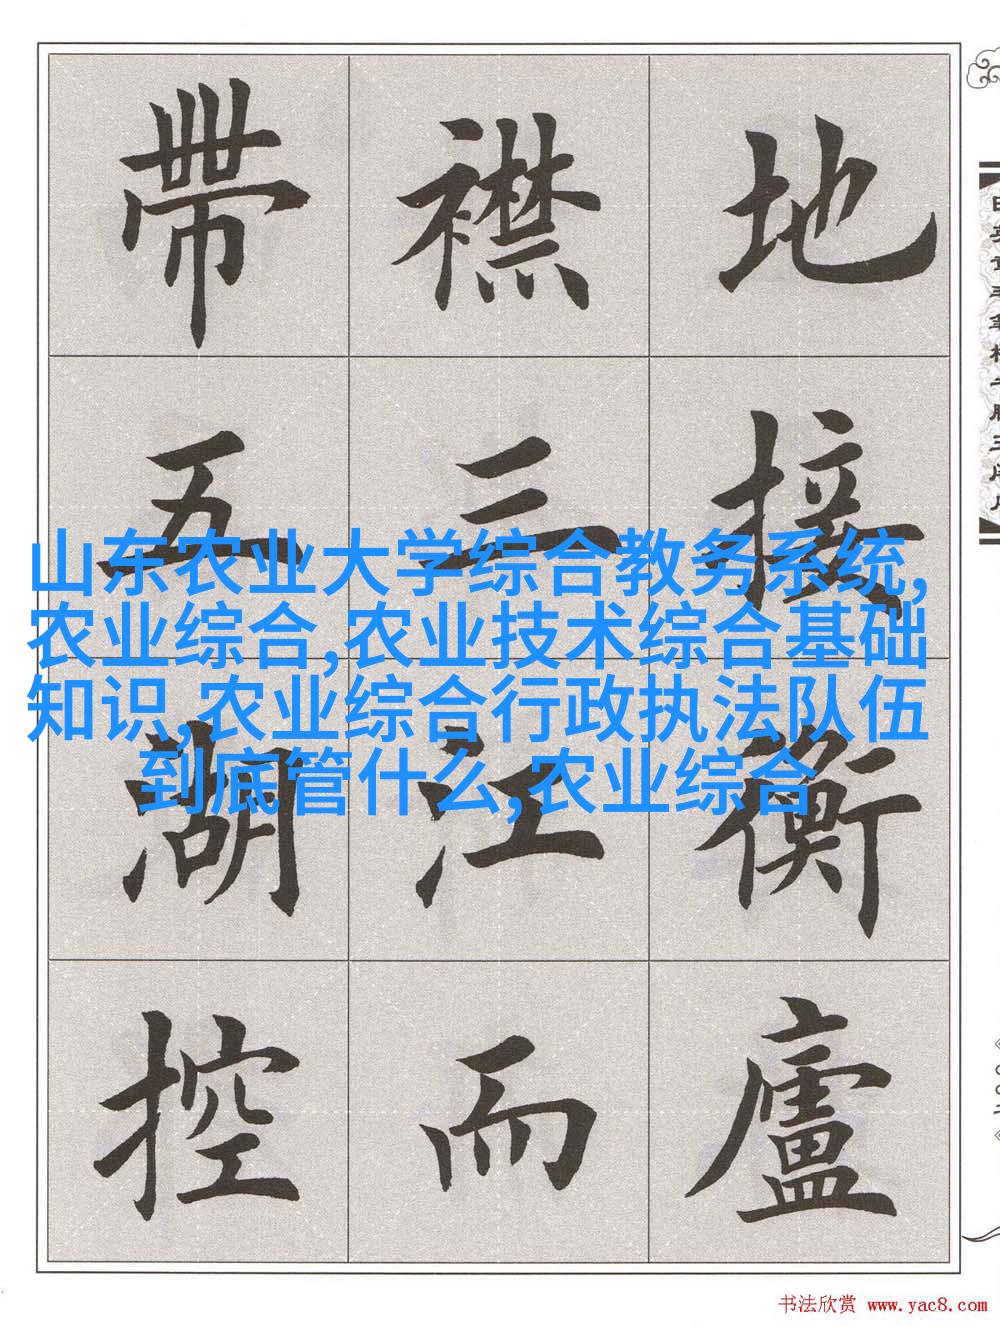 地接衡廬
襟三江而
帶五湖控
山东农业大学综合教务系统,
农业综合,农业技术综合基础
知识,农业综合行政执法队伍
到底管什么,农业综合
书法欣赏 www.yac8.com